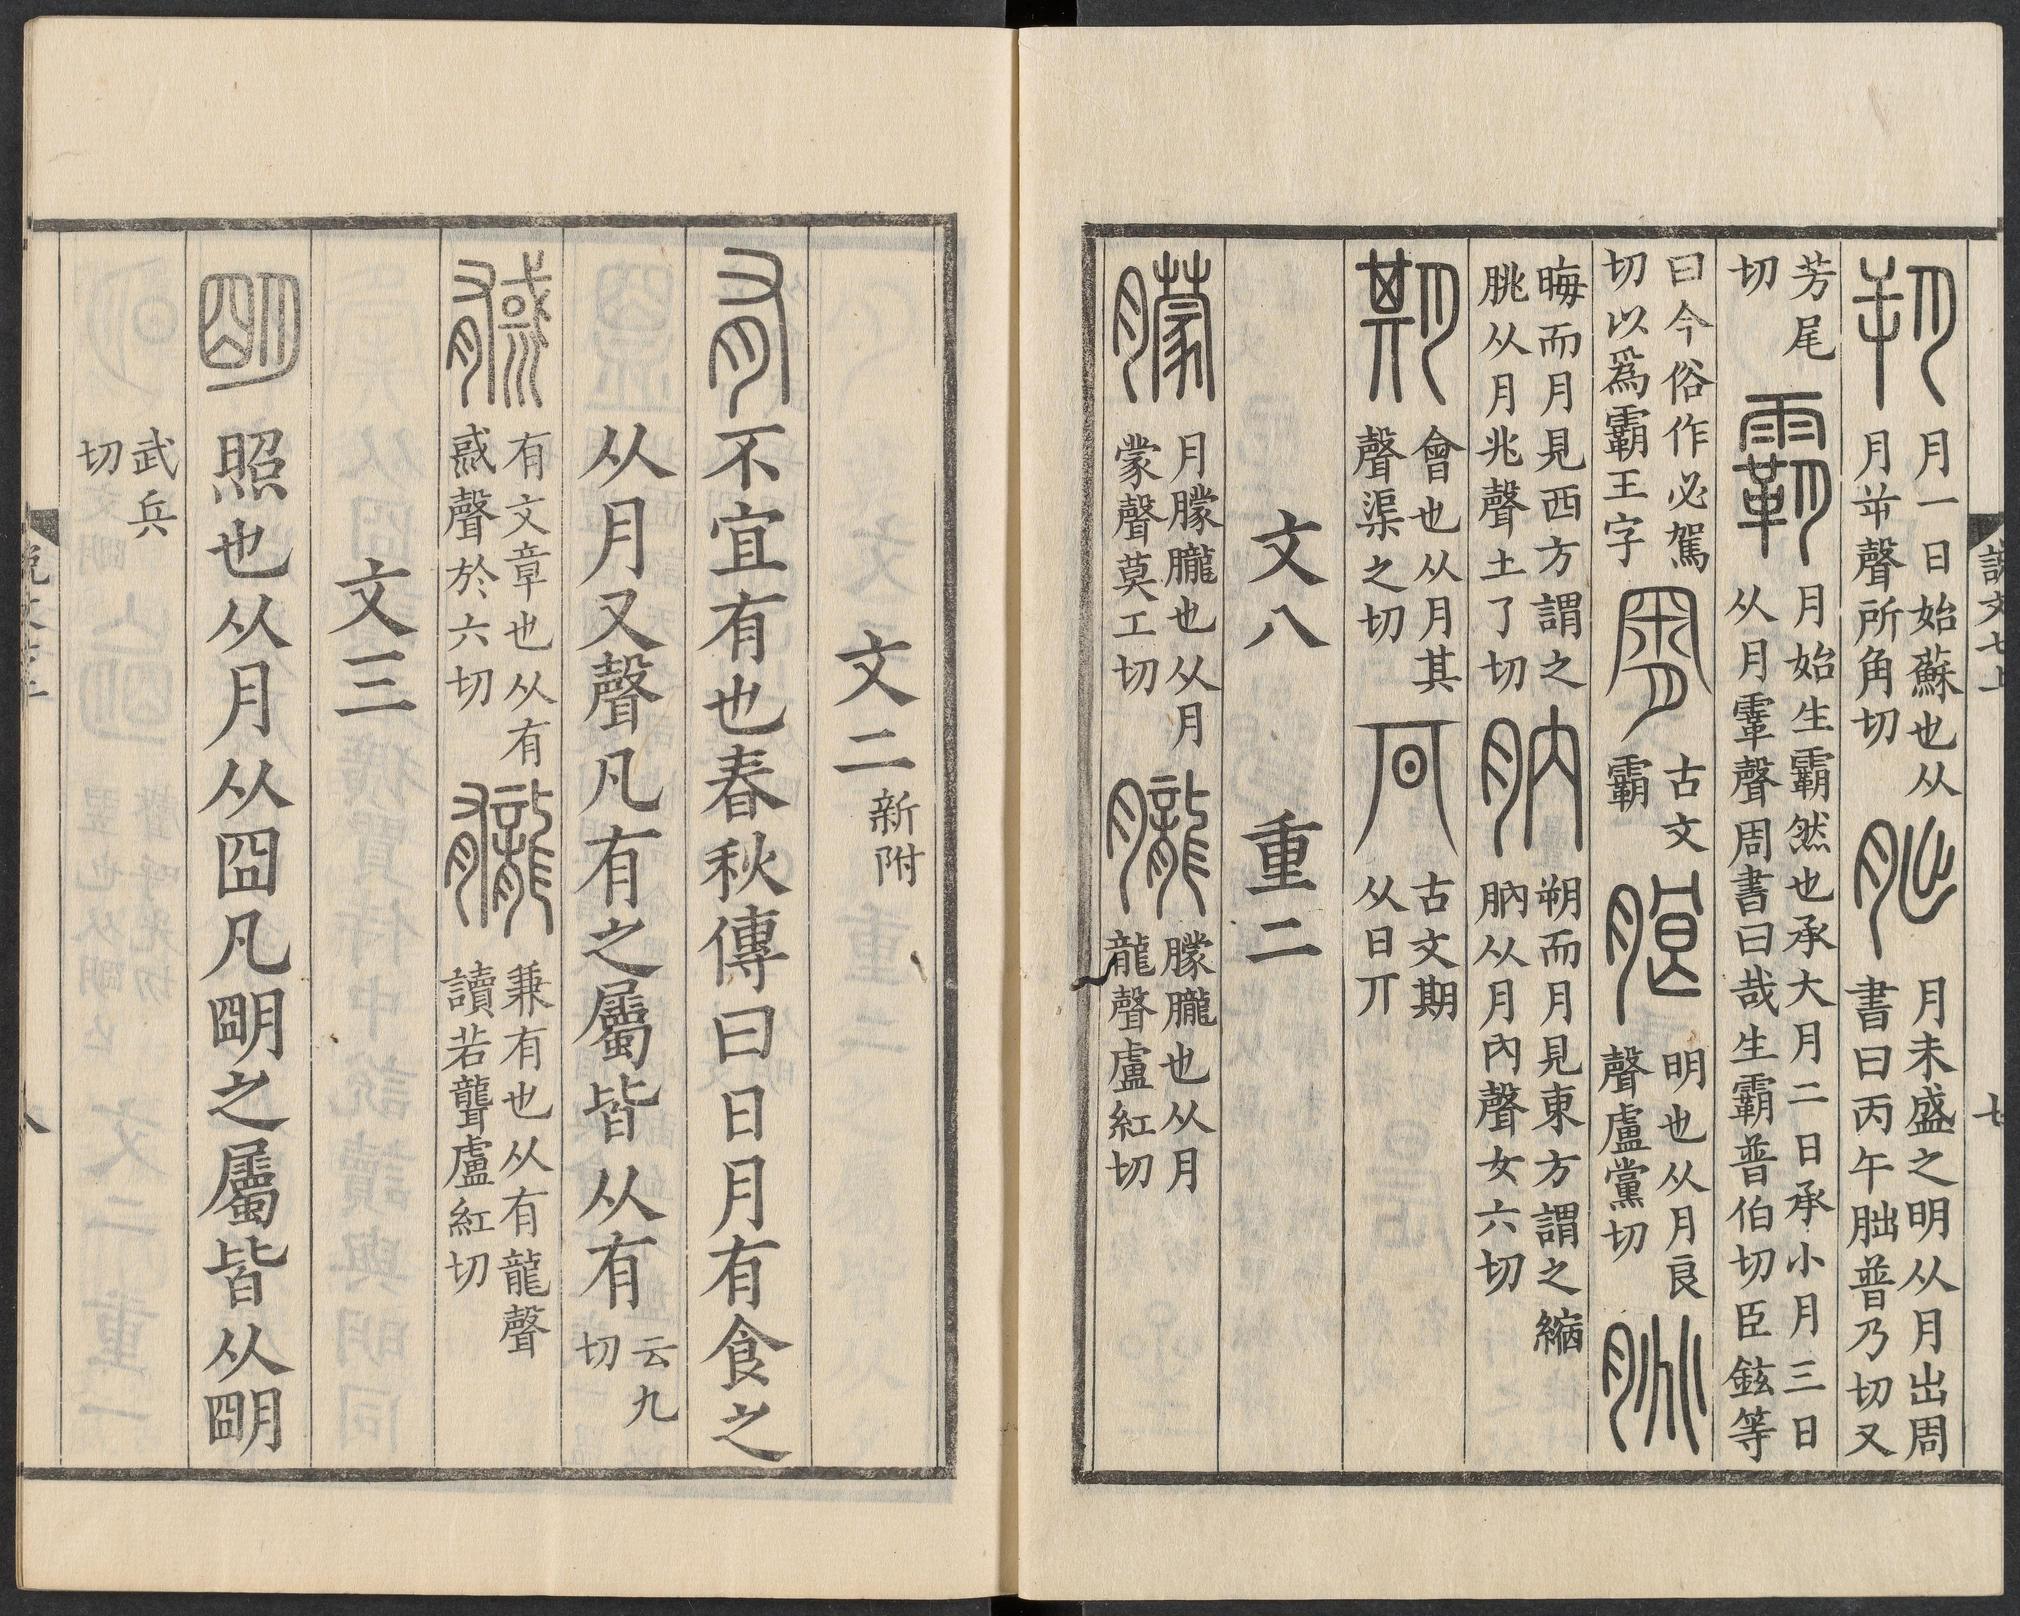 說文七上 七
朔 月一日始蘇也从月屰聲所角切 朏 月未盛之明从月出周書曰丙午朏普乃切又
芳尾切 霸 月始生霸然也承大月二日承小月三日从月䨣聲周書曰哉生霸普伯切臣鉉等
曰今俗作必駕切以爲霸王字 古文霸 朖 明也从月良聲盧黨切 朓
晦而月見西方謂之朓从月兆聲土了切 肭 朔而月見東方謂之縮肭从月內聲女六切
期 會也从月其聲渠之切 古文期从日丌
文八 重二
朦 月朦朧也从月蒙聲莫工切 朧 朦朧也从月龍聲盧紅切
文二 新附
有 不宜有也春秋傳曰日月有食之
从月又聲凡有之屬皆从有 云九切
有文章也从有惑聲於六切 龓 兼有也从有龍聲讀若聾盧紅切
文三
朙 照也从月从囧凡朙之屬皆从朙
武兵切
說文七上 八